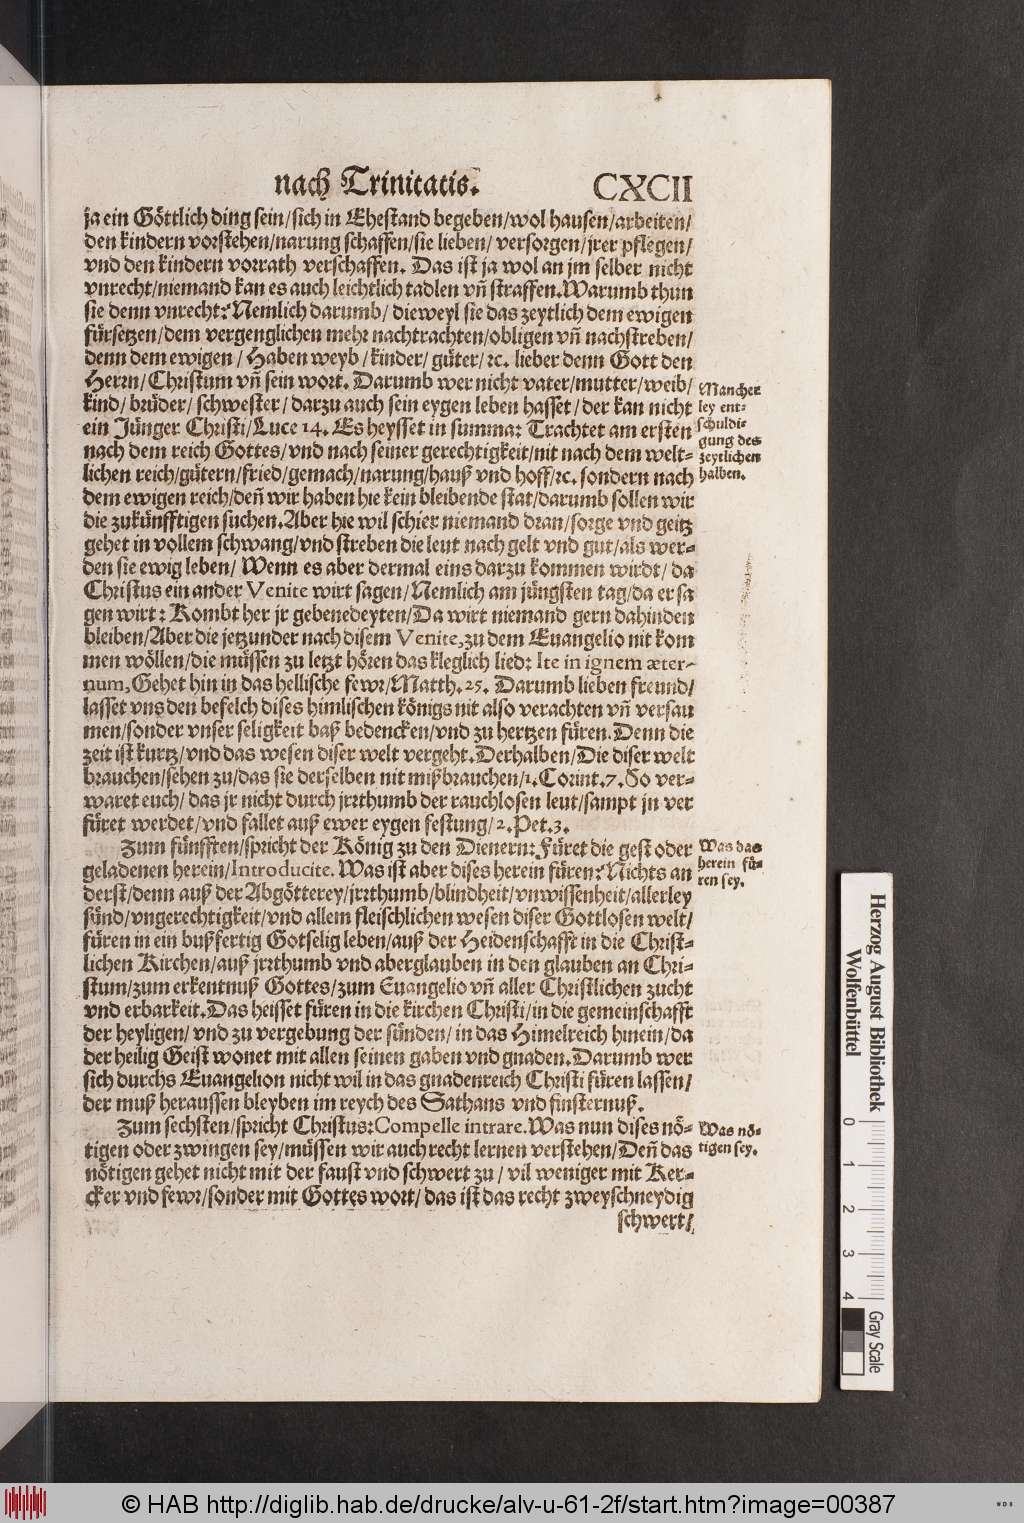 nach Trinitatis.
CXCII
ja ein Göttlich ding sein/sich in Ehestand begeben/wol hausen/arbeiten/
den kindern vorstehen/narung schaffen/sie lieben/ versorgen/jrer pflegen/
vnd den kindern vorrath verschaffen. Das ist ja wol an jm selber nicht
vnrecht/niemand kan es auch leichtlich tadlen vñ straffen. Warumb thun
sie denn vnrecht? Nemlich darumb/ dieweyl sie das zeytlich dem ewigen
fürsetzen/dem vergenglichen mehr nachtrachten/obligen vñ nachstreben/
denn dem ewigen / Haben weyb / kinder/ güter/ ꝛc. lieber denn Gott den
Herrn/ Christum vñ sein wort. Darumb wer nicht vater/mutter/weib/
kind/ brüder/ schwester/ darzu auch sein eygen leben hasset/ der kan nicht
ein Jünger Christi/ Luce 14. Es heysset in summa: Trachtet am ersten
nach dem reich Gottes/ vnd nach seiner gerechtigkeit/nit nach dem welt-
lichen reich/gütern/fried/gemach/narung/hauß vnd hoff/ꝛc. sondern nach
dem ewigen reich/deñ wir haben hie kein bleibende stat/darumb sollen wir
die zukünfftigen suchen. Aber hie wil schier niemand dran/sorge vnd geitz
gehet in vollem schwang/vnd streben die leut nach gelt vnd gut/als wer-
den sie ewig leben/ Wenn es aber dermal eins darzu kommen wirdt/ da
Christus ein ander Venite wirt sagen/ Nemlich am jüngsten tag/da er sa
gen wirt: Kombt her jr gebenedeyten/ Da wirt niemand gern dahinden
bleiben/Aber die jetzunder nach disem Venite, zu dem Euangelio nit kom
men wöllen/die müssen zu letzt hören das kleglich lied: Ite in ignem æter-
num, Gehet hin in das hellische fewr/Matth. 25. Darumb lieben freund/
lasset vns den befelch dises himlischen königs nit also verachten vñ versau
men/sonder vnser seligkeit baß bedencken/vnd zu hertzen füren. Denn die
zeit ist kurtz/ vnd das wesen diser welt vergeht. Derhalben/Die diser welt
brauchen/sehen zu/das sie derselben nit mißbrauchen/1. Corint. 7. So ver-
waret euch/ das jr nicht durch jrrthumb der rauchlosen leut/sampt jn ver
füret werdet/vnd fallet auß ewer eygen festung/2. Pet. 3.
Zum fünfften/spricht der König zu den Dienern: Füret die gest oder
geladenen herein/Introducite. Was ist aber dises herein füren? Nichts an
derst/denn auß der Abgötterey/jrrthumb/blindheit/vnwissenheit/allerley
sünd/vngerechtigkeit/vnd allem fleischlichen wesen diser Gottlosen welt/
füren in ein bußfertig Gotselig leben/auß der Heidenschafft in die Christ-
lichen Kirchen/auß jrrthumb vnd aberglauben in den glauben an Chri-
stum/zum erkentnuß Gottes/zum Euangelio vñ aller Christlichen zucht
vnd erbarkeit. Das heisset füren in die kirchen Christi/in die gemeinschafft
der heyligen/ vnd zu vergebung der sünden/ in das Himelreich hinein/da
der heilig Geist wonet mit allen seinen gaben vnd gnaden. Darumb wer
sich durchs Euangelion nicht wil in das gnadenreich Christi füren lassen/
der muß heraussen bleyben im reych des Sathans vnd finsternuß.
Zum sechsten/spricht Christus: Compelle intrare. Was nun dises nö-
tigen oder zwingen sey/müssen wir auch recht lernen verstehen/ Deñ das
nötigen gehet nicht mit der faust vnd schwert zu/ vil weniger mit Ker-
cker vnd fewr/sonder mit Gottes wort/ das ist das recht zweyschneydig
schwert/
Mancher
ley ent-
schuldi-
gung des
zeytlichen
halben.
Was das
herein fü-
ren sey.
Was nö-
tigen sey.
Herzog August Bibliothek
Wolfenbüttel
0 1 2 3 4
Gray Scale
© HAB http://diglib.hab.de/drucke/alv-u-61-2f/start.htm?image=00387
WDB